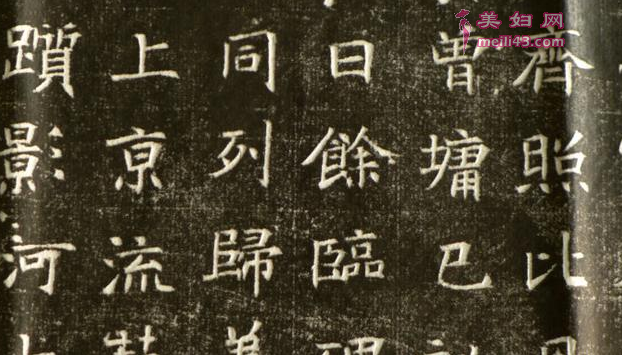 美妇网
meili43.com
齊照比
曾墉巳
日餘臨
同列歸
上亰流
躓影河